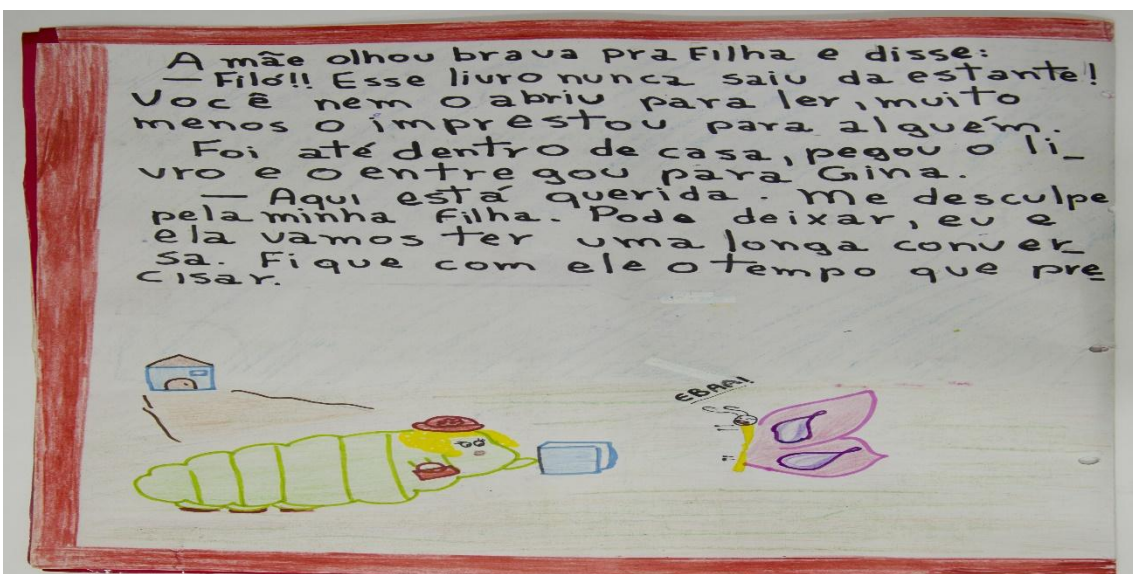 A mãe olhou brava pra Filha e disse:
— Filó!! Esse livro nunca saiu da estante!
Você nem o abriu para ler, muito
menos o imprestou para alguém.
Foi até dentro de casa, pegou o li_
vro e o entregou para Gina.
— Aqui está querida. Me desculpe
pela minha Filha. Pode deixar, eu e
ela vamos ter uma longa conver_
sa. Fique com ele o tempo que pre_
cisar.
EBAA!